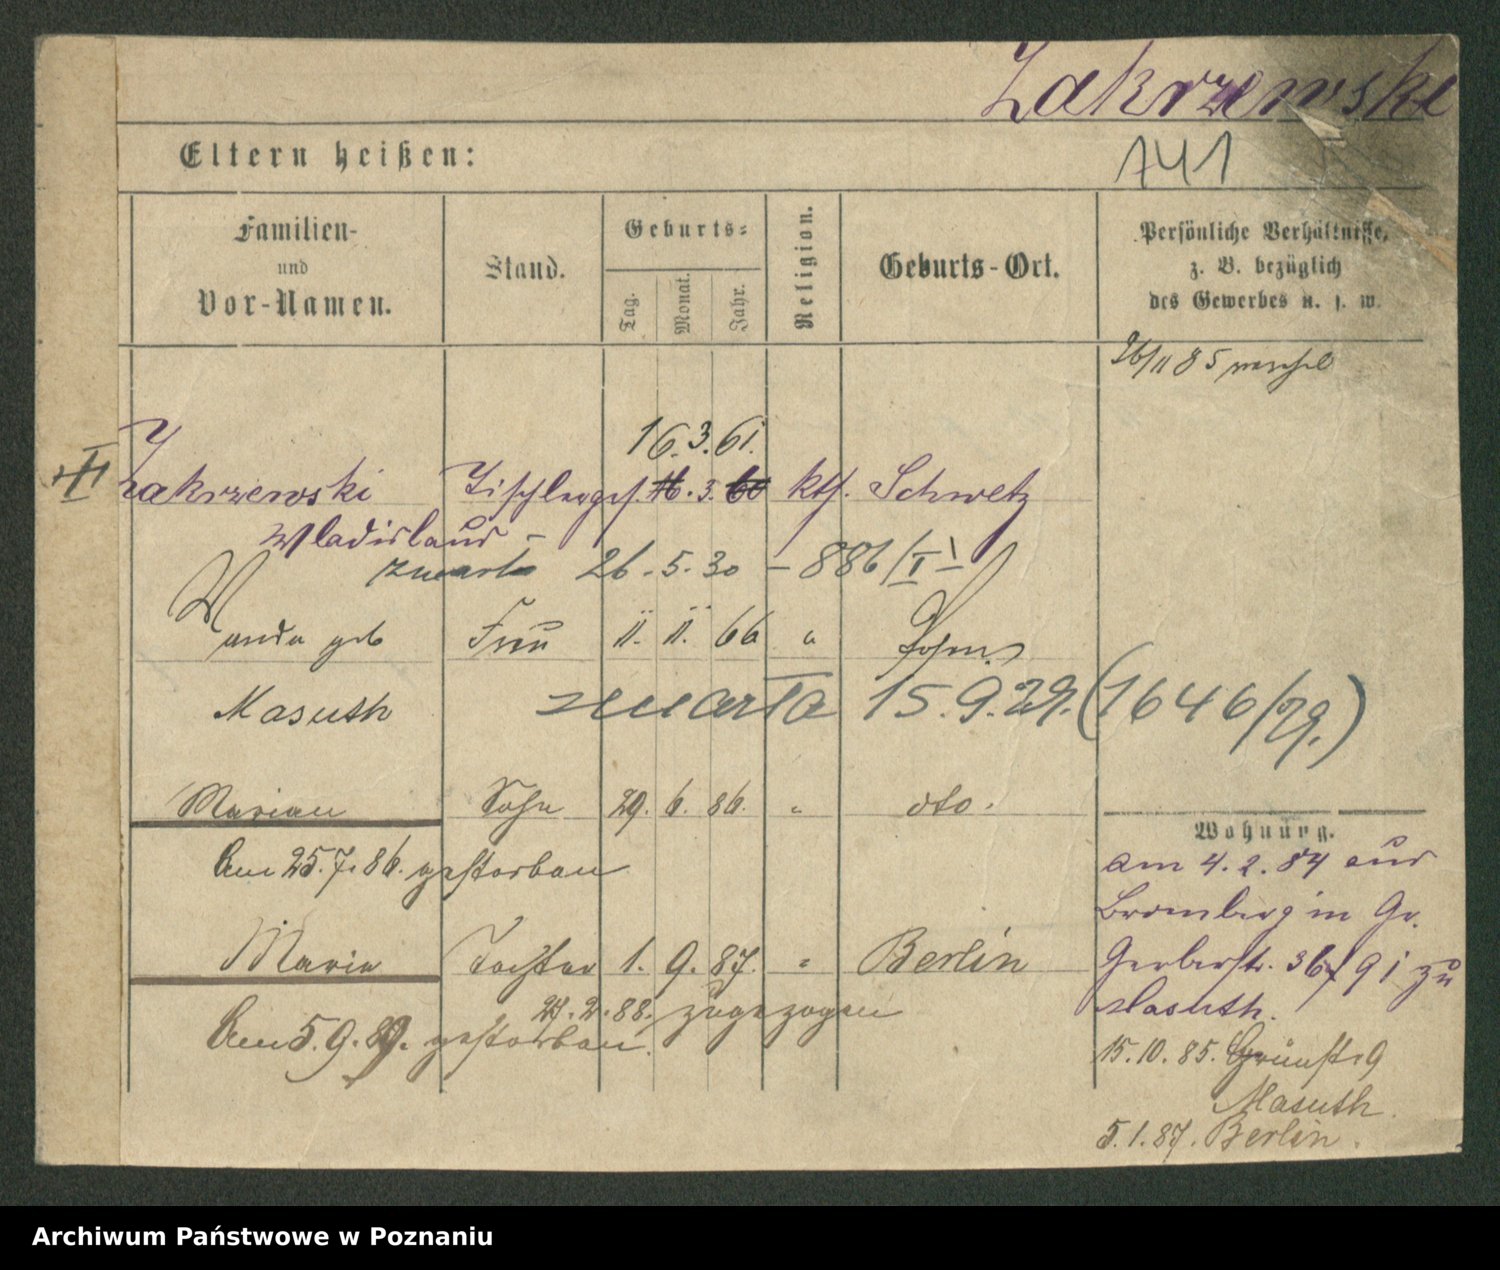 Zakrzewski
Eltern heißen:
141
Familien-
und
Vor-Namen.
Stand.
Geburts-
Tag.
Monat.
Jahr.
Religion.
Geburts-Ort.
Persönliche Verhältnisse,
z. B. bezüglich
des Gewerbes u. s. w.
26/11 85
16. 3. 61.
Zakrzewski Tischlerges. 16. 3. 60 kth. Schwetz
Wladislaus –
zmarł 26. 5. 30 – 886/I
Wanda geb Frau 11. 11. 66 " Posen
Masuth
zmarła 15. 9. 29. (1646/29.)
Marian Sohn 29. 6. 86. " dto.
Am 25. 7. 86. gestorben
Maria Tochter 1. 9. 87. " Berlin
27. 2. 88. zugezogen
Am 5. 9. 89. gestorben.
Wohnung.
am 4. 2. 84 aus
Bromberg in Gr.
Gerberstr. 36/91 zu
Masuth.
15. 10. 85. Grünstr 9
Masuth.
5. 1. 87. Berlin.
Archiwum Państwowe w Poznaniu